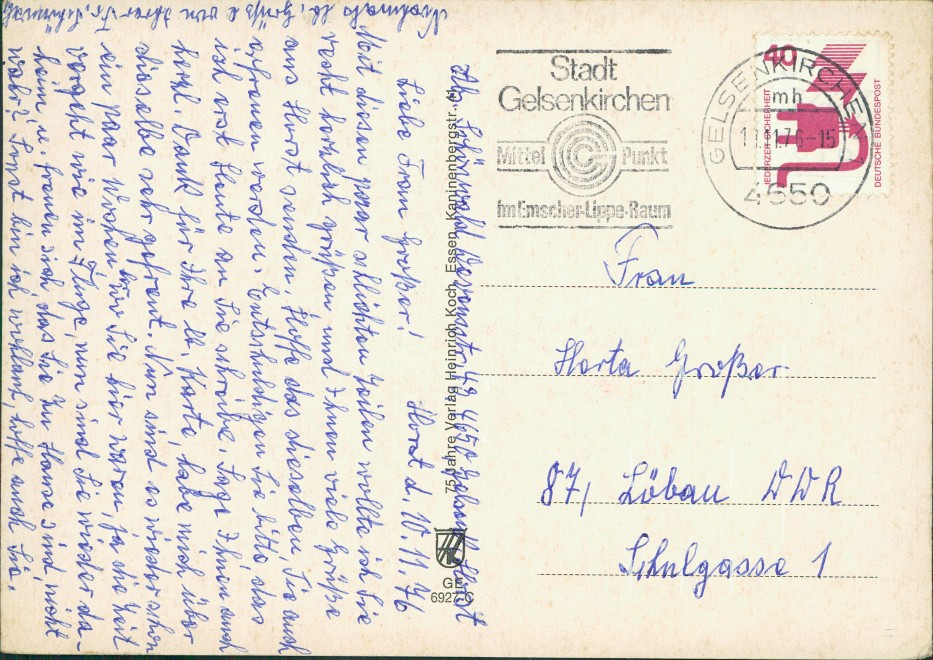 Stadt
Gelsenkirchen
Mittel Punkt
im Emscher-Lippe-Raum
GELSENKIRCHEN
mh
11.76-15
4650
40
JEDERZEIT SICHERHEIT
DEUTSCHE BUNDESPOST
Frau
Herta Großer
87, Löbau DDR
Schulgasse 1
Abs. Schönwald, 49 4650 Gelsenk. Horst
75 Jahre Verlag Heinrich Koch, Essen, Kanninenbergstr.
GE
6927 C
Liebe Frau Großer! Horst d. 10.11.76
Mit diesen paar schlichten Zeilen wollte ich Sie
recht herzlich grüßen und Ihnen viele Grüße
aus Horst senden, Hoffe das dieselben Sie auch
erfreuen werden. Entschuldigen Sie bitte das
ich erst Heute an Sie schreibe. Sage Ihnen auch
herzl. Dank für Ihre lb. Karte, habe mich über
dieselbe sehr gefreut. Nun sind es wieder schon
ein paar Wochen wie Sie hier waren, ja die Zeit
vergeht wie im Fluge, nun sind Sie wieder da-
heim, u. freuen sich, das Sie zu Hause sind, nicht
wahr? Sonst bin ich wohlauf, hoffe auch Sie.
Nochmals lb. Grüße von Ihrer Fr. Schönwald